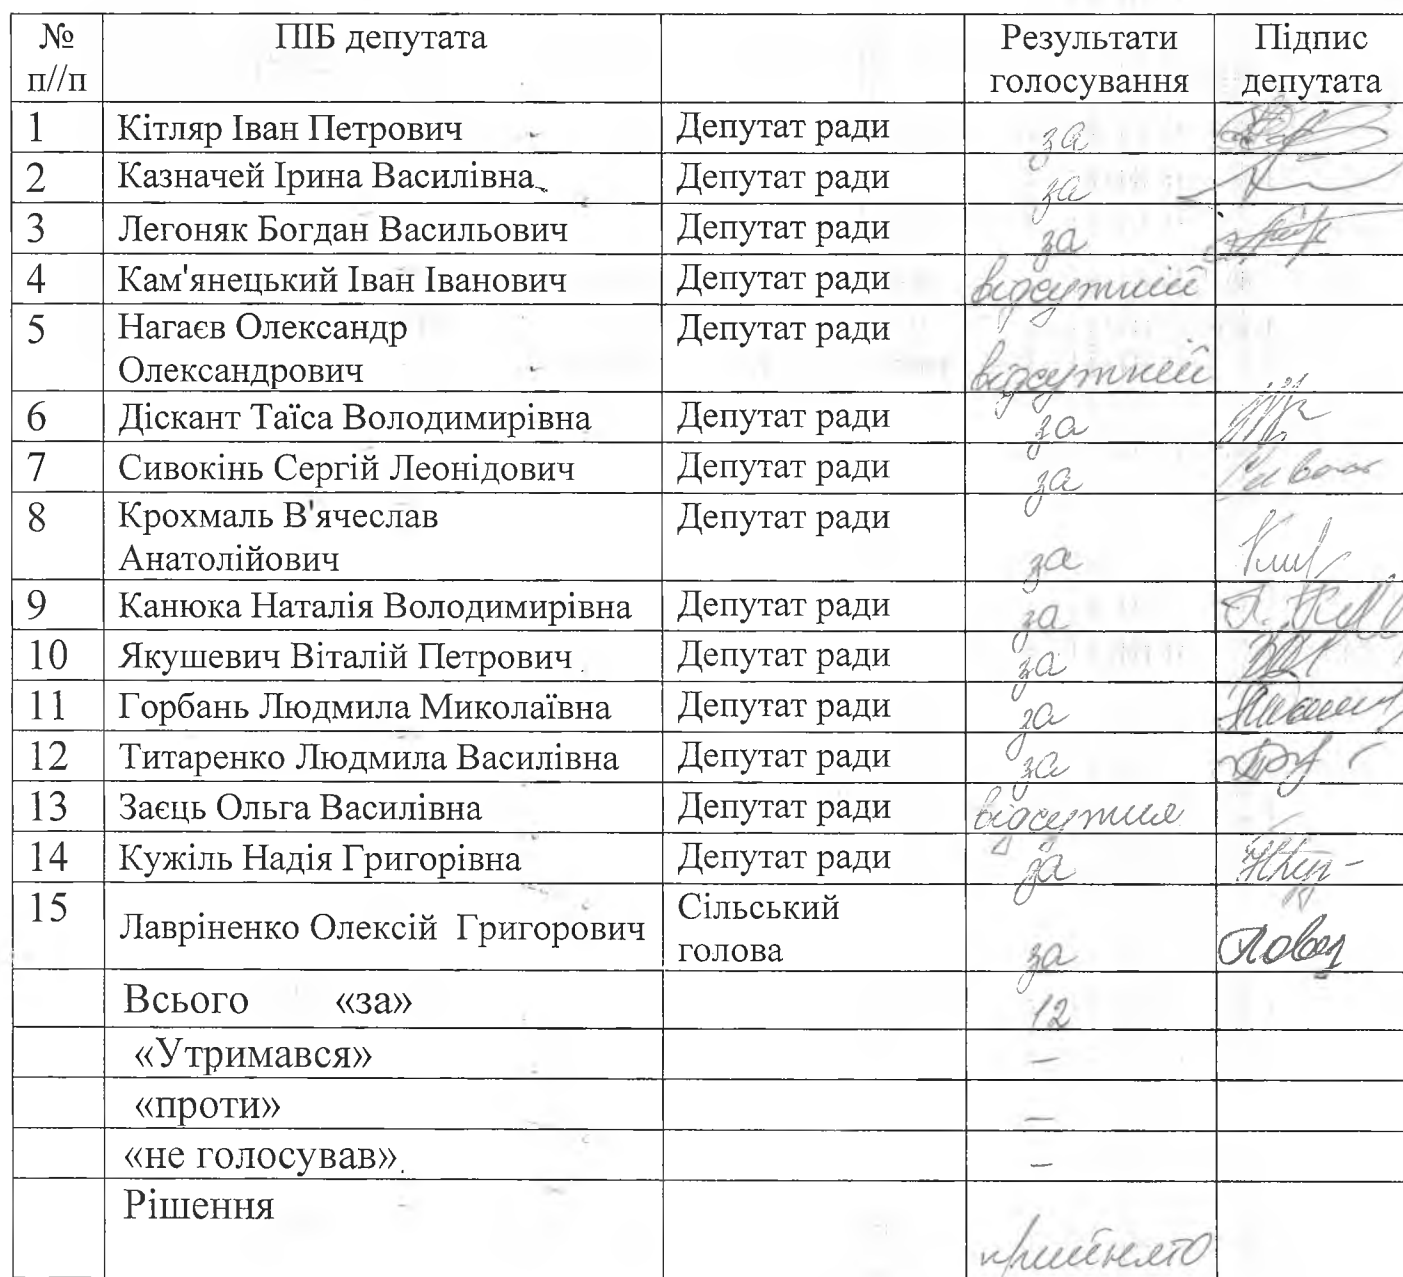 № ПІБ депутата Результати Підпис
п//п голосування депутата
1 Кітляр Іван Петрович Депутат ради за
2 Казначей Ірина Василівна Депутат ради за
3 Легоняк Богдан Васильович Депутат ради за
4 Кам'янецький Іван Іванович Депутат ради відсутній
5 Нагаєв Олександр Депутат ради
Олександрович відсутній
6 Діскант Таїса Володимирівна Депутат ради за
7 Сивокінь Сергій Леонідович Депутат ради за
8 Крохмаль В'ячеслав Депутат ради
Анатолійович за
9 Канюка Наталія Володимирівна Депутат ради за
10 Якушевич Віталій Петрович Депутат ради за
11 Горбань Людмила Миколаївна Депутат ради за
12 Титаренко Людмила Василівна Депутат ради за
13 Заєць Ольга Василівна Депутат ради відсутня
14 Кужіль Надія Григорівна Депутат ради за
15 Лавріненко Олексій Григорович Сільський
голова за
Всього «за» 12
«Утримався» –
«проти» –
«не голосував» –
Рішення
прийнято